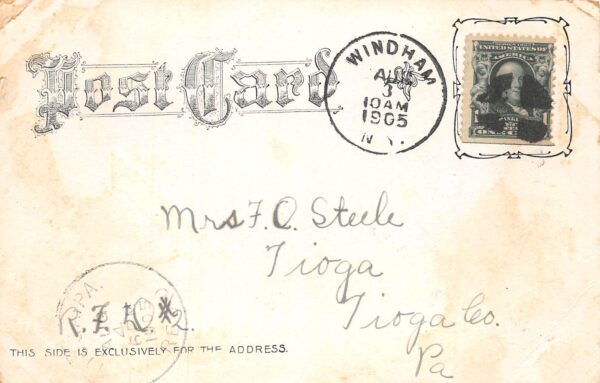 Post Card
WINDHAM
AUG
3
10 AM
1905
N.Y.
UNITED STATES OF
AMERICA
ONE CENT
Mrs F. O. Steele
Tioga
Tioga Co.
Pa
R. F. D. #2.
PA.
THIS SIDE IS EXCLUSIVELY FOR THE ADDRESS.